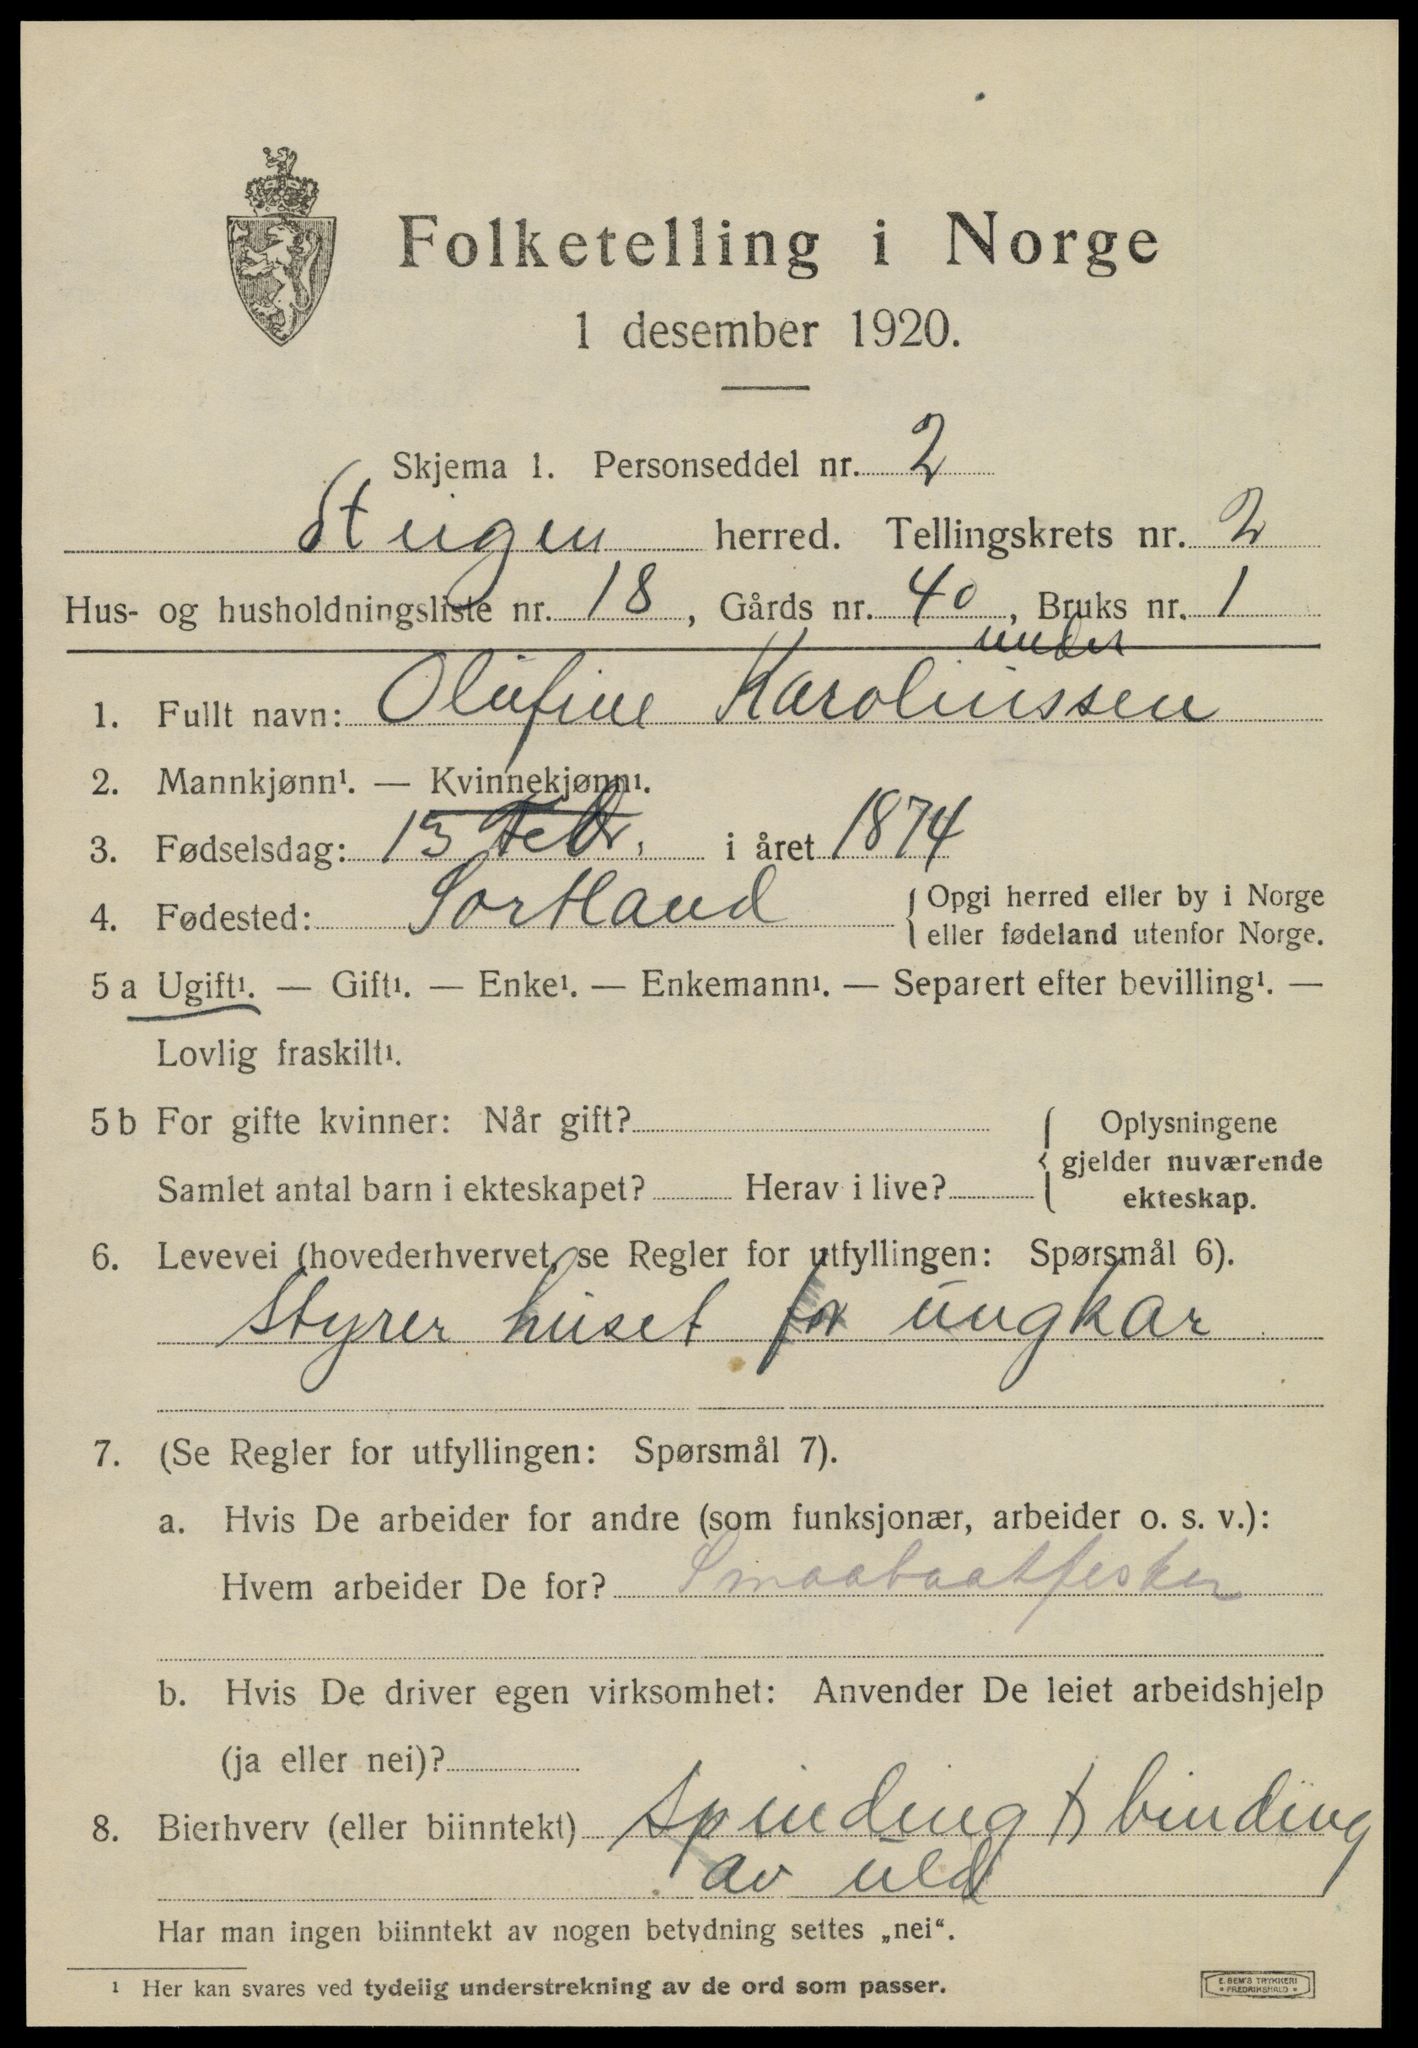 Folketelling i Norge
1 desember 1920.
Skjema 1. Personseddel nr. 2
Steigen herred. Tellingskrets nr. 2
Hus- og husholdningsliste nr. 18, Gårds nr. 40, Bruks nr. 1
under
1. Fullt navn: Olufine Karolinssen
2. Mannkjønn¹. — Kvinnekjønn¹.
3. Fødselsdag: 13 Febr. i året 1874
4. Fødested: Sortland
Opgi herred eller by i Norge
eller fødeland utenfor Norge.
5 a Ugift¹. — Gift¹. — Enke¹. — Enkemann¹. — Separert efter bevilling¹. —
Lovlig fraskilt¹.
5 b For gifte kvinner: Når gift?
Samlet antal barn i ekteskapet? Herav i live?
Oplysningene
gjelder nuværende
ekteskap.
6. Levevei (hovederhvervet, se Regler for utfyllingen: Spørsmål 6).
Styrer huset for ungkar
7. (Se Regler for utfyllingen: Spørsmål 7).
a. Hvis De arbeider for andre (som funksjonær, arbeider o. s. v.):
Hvem arbeider De for? Smaabaatfisker
b. Hvis De driver egen virksomhet: Anvender De leiet arbeidshjelp
(ja eller nei)?
8. Bierhverv (eller biinntekt) Spinding & binding
av uld
Har man ingen biinntekt av nogen betydning settes „nei“.
¹ Her kan svares ved tydelig understrekning av de ord som passer.
E. SEM'S TRYKKERI
* FREDRIKSHALD *